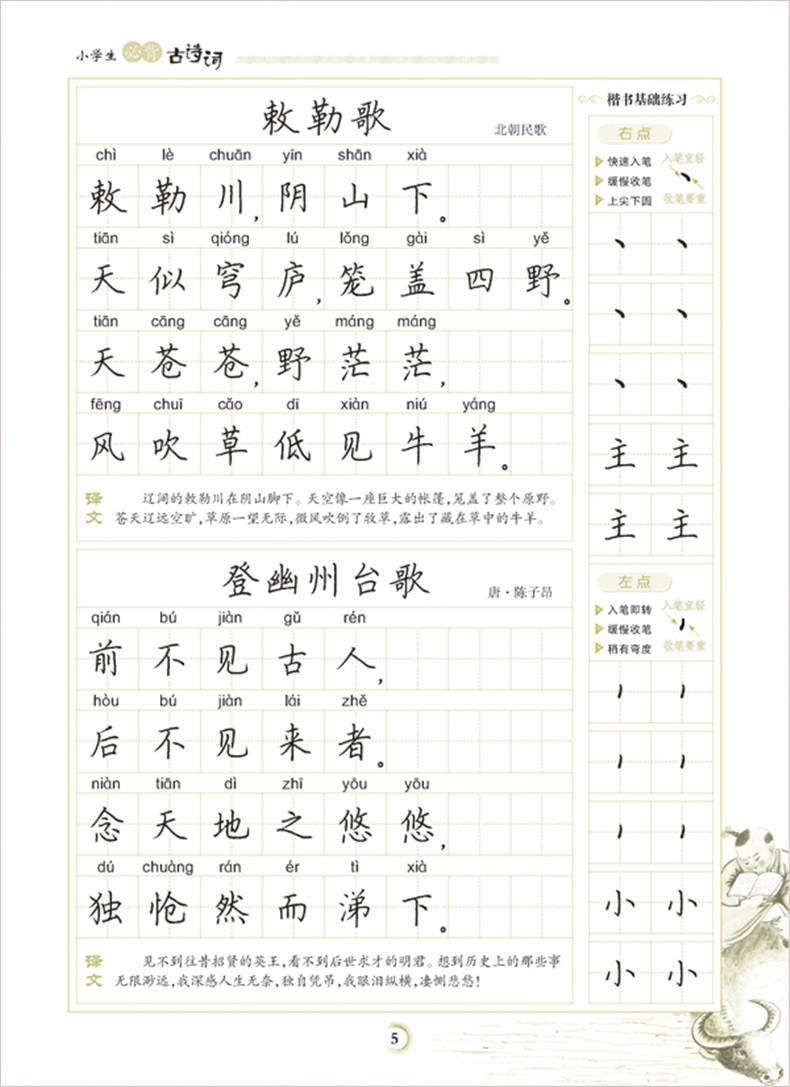 小学生 必背 古诗词
敕勒歌
北朝民歌
chì lè chuān yīn shān xià
敕勒川，阴山下。
tiān sì qióng lú lǒng gài sì yě
天似穹庐，笼盖四野。
tiān cāng cāng yě máng máng
天苍苍，野茫茫，
fēng chuī cǎo dī xiàn niú yáng
风吹草低见牛羊。
译文
辽阔的敕勒川在阴山脚下。天空像一座巨大的帐篷，笼盖了整个原野。
苍天辽远空旷，草原一望无际，微风吹倒了牧草，露出了藏在草中的牛羊。
登幽州台歌
唐·陈子昂
qián bú jiàn gǔ rén
前不见古人，
hòu bú jiàn lái zhě
后不见来者。
niàn tiān dì zhī yōu yōu
念天地之悠悠，
dú chuàng rán ér tì xià
独怆然而涕下。
译文
见不到往昔招贤的英王，看不到后世求才的明君。想到历史上的那些事
无限渺远，我深感人生无奈，独自凭吊，我眼泪纵横，凄恻悲愁！
楷书基础练习
右点
快速入笔
缓慢收笔
上尖下圆
入笔宜轻
收笔要重
丶 丶
丶 丶
丶 丶
主 主
主 主
左点
入笔即转
缓慢收笔
稍有弯度
入笔宜轻
收笔要重
小 小
小 小
5